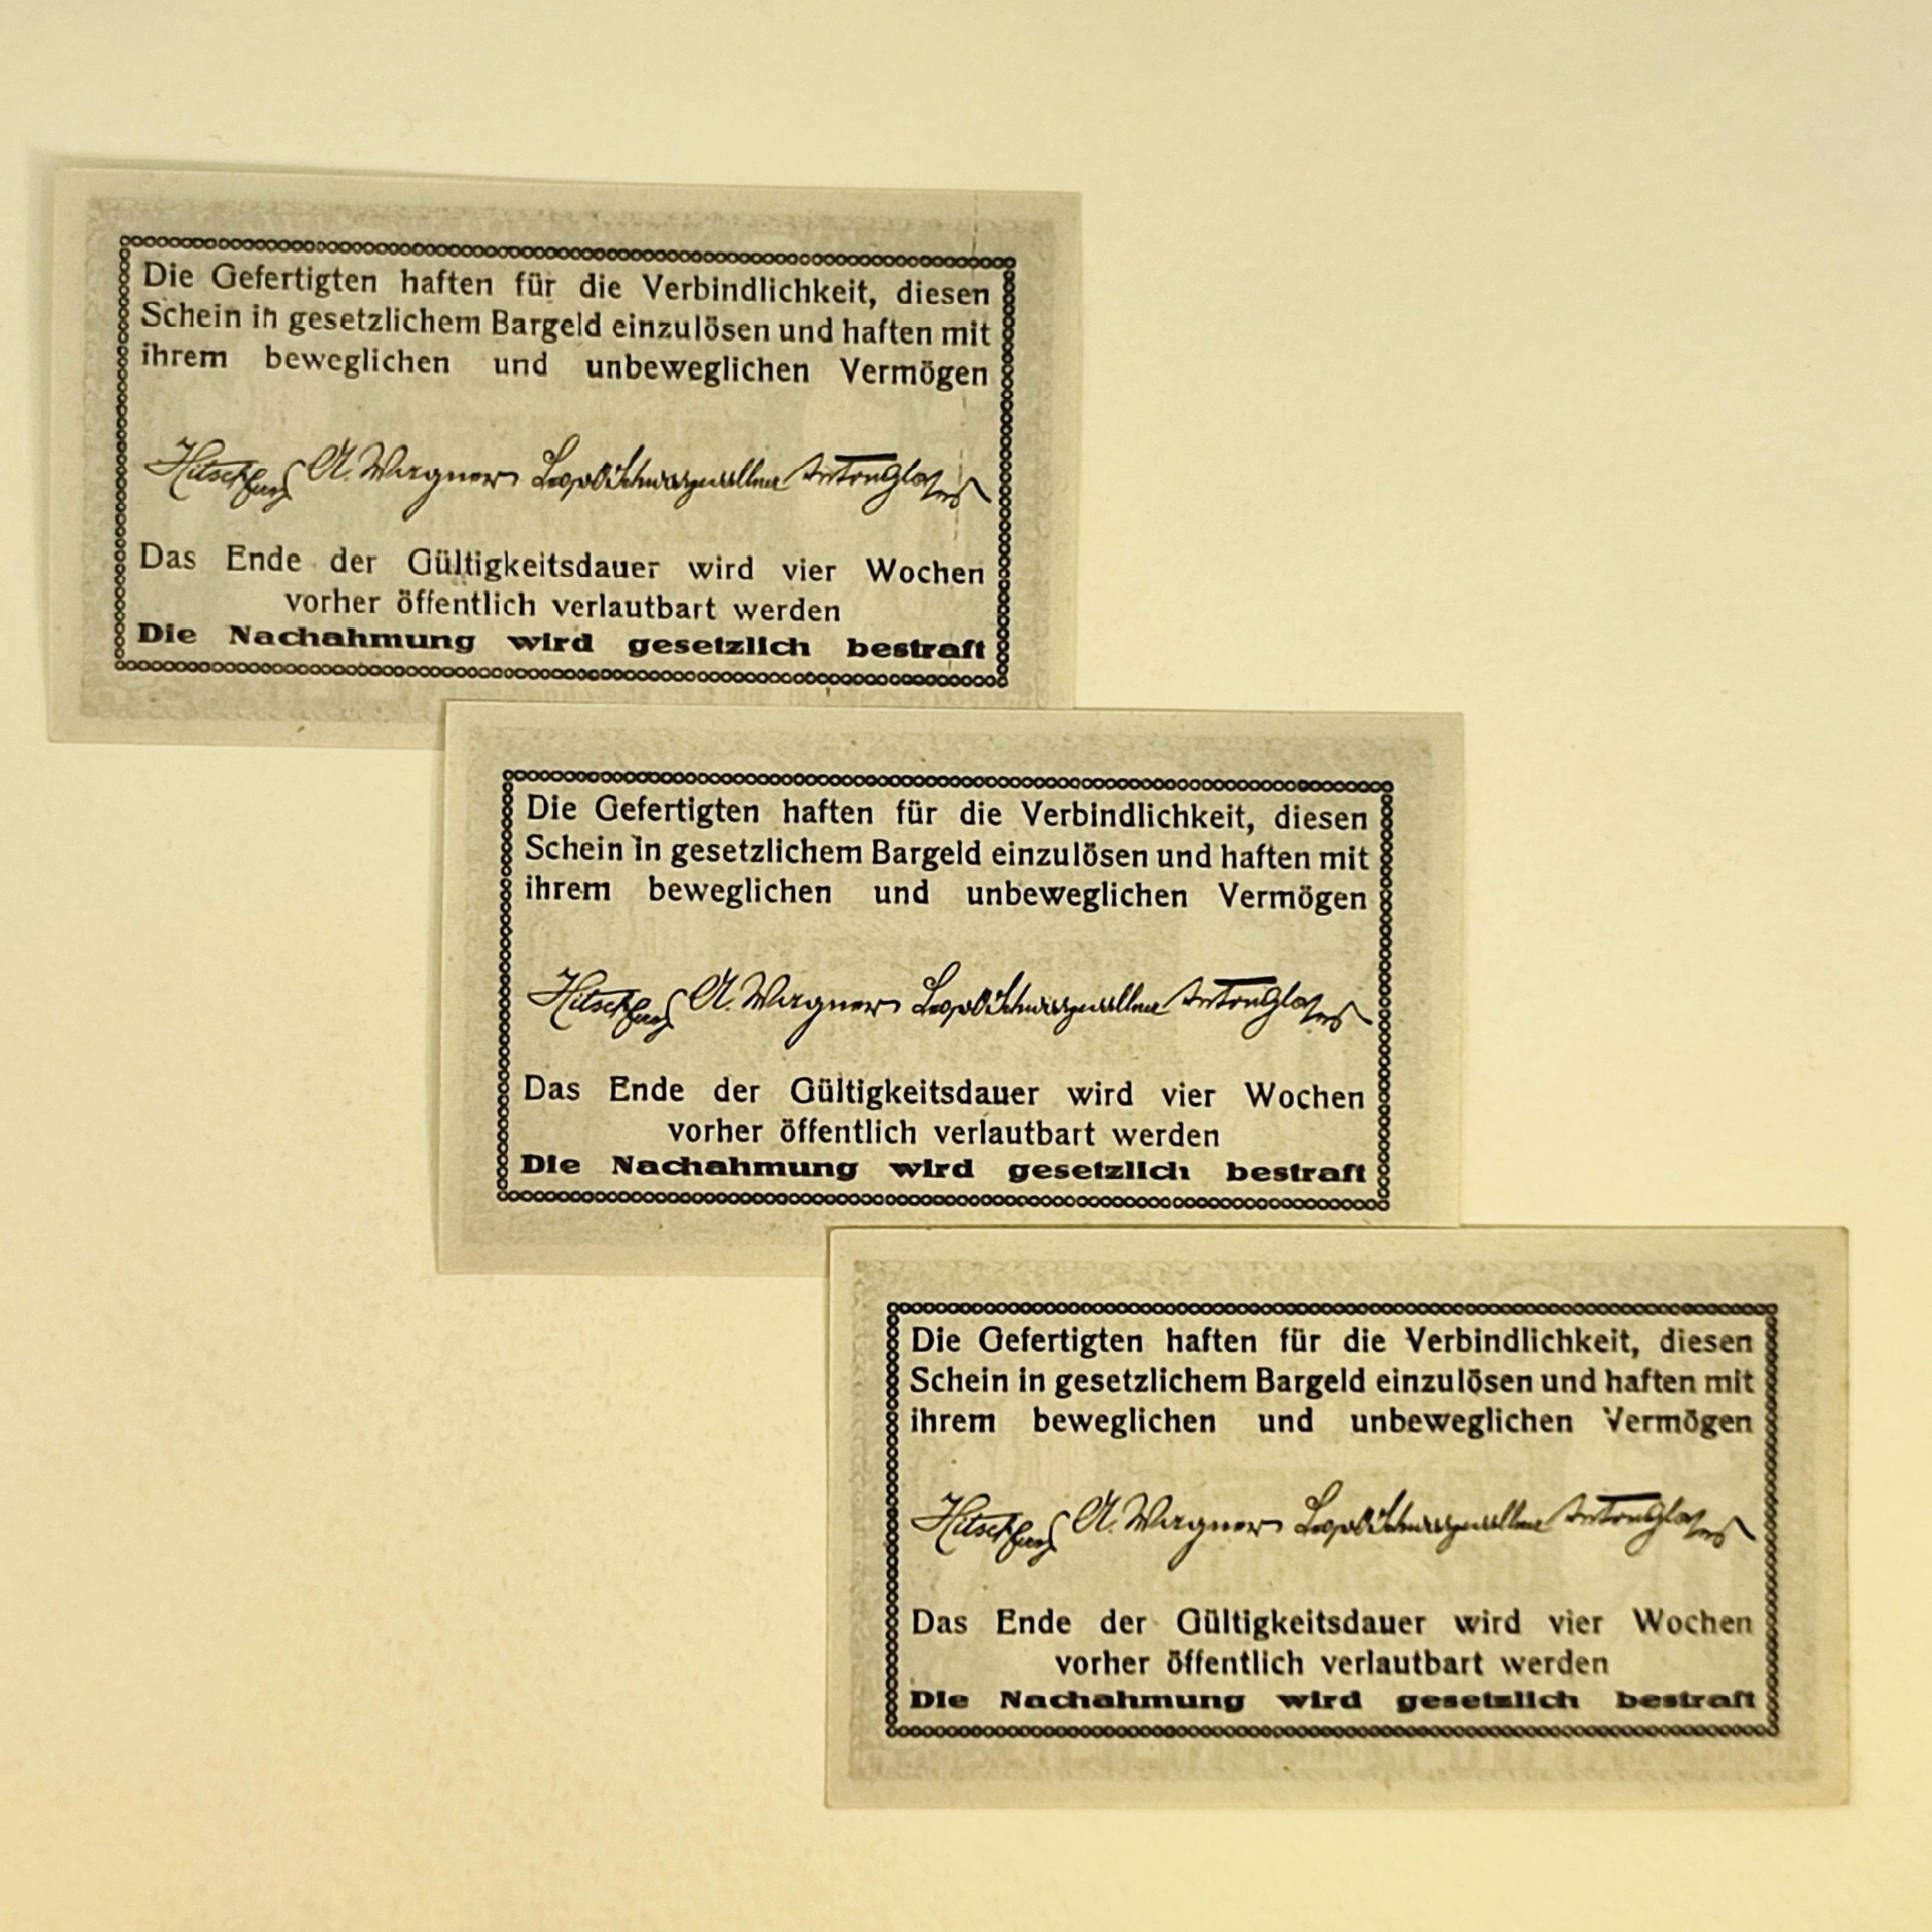 Die Gefertigten haften für die Verbindlichkeit, diesen
Schein in gesetzlichem Bargeld einzulösen und haften mit
ihrem beweglichen und unbeweglichen Vermögen
A. Wagner
Das Ende der Gültigkeitsdauer wird vier Wochen
vorher öffentlich verlautbart werden
Die Nachahmung wird gesetzlich bestraft
Die Gefertigten haften für die Verbindlichkeit, diesen
Schein in gesetzlichem Bargeld einzulösen und haften mit
ihrem beweglichen und unbeweglichen Vermögen
A. Wagner
Das Ende der Gültigkeitsdauer wird vier Wochen
vorher öffentlich verlautbart werden
Die Nachahmung wird gesetzlich bestraft
Die Gefertigten haften für die Verbindlichkeit, diesen
Schein in gesetzlichem Bargeld einzulösen und haften mit
ihrem beweglichen und unbeweglichen Vermögen
A. Wagner
Das Ende der Gültigkeitsdauer wird vier Wochen
vorher öffentlich verlautbart werden
Die Nachahmung wird gesetzlich bestraft